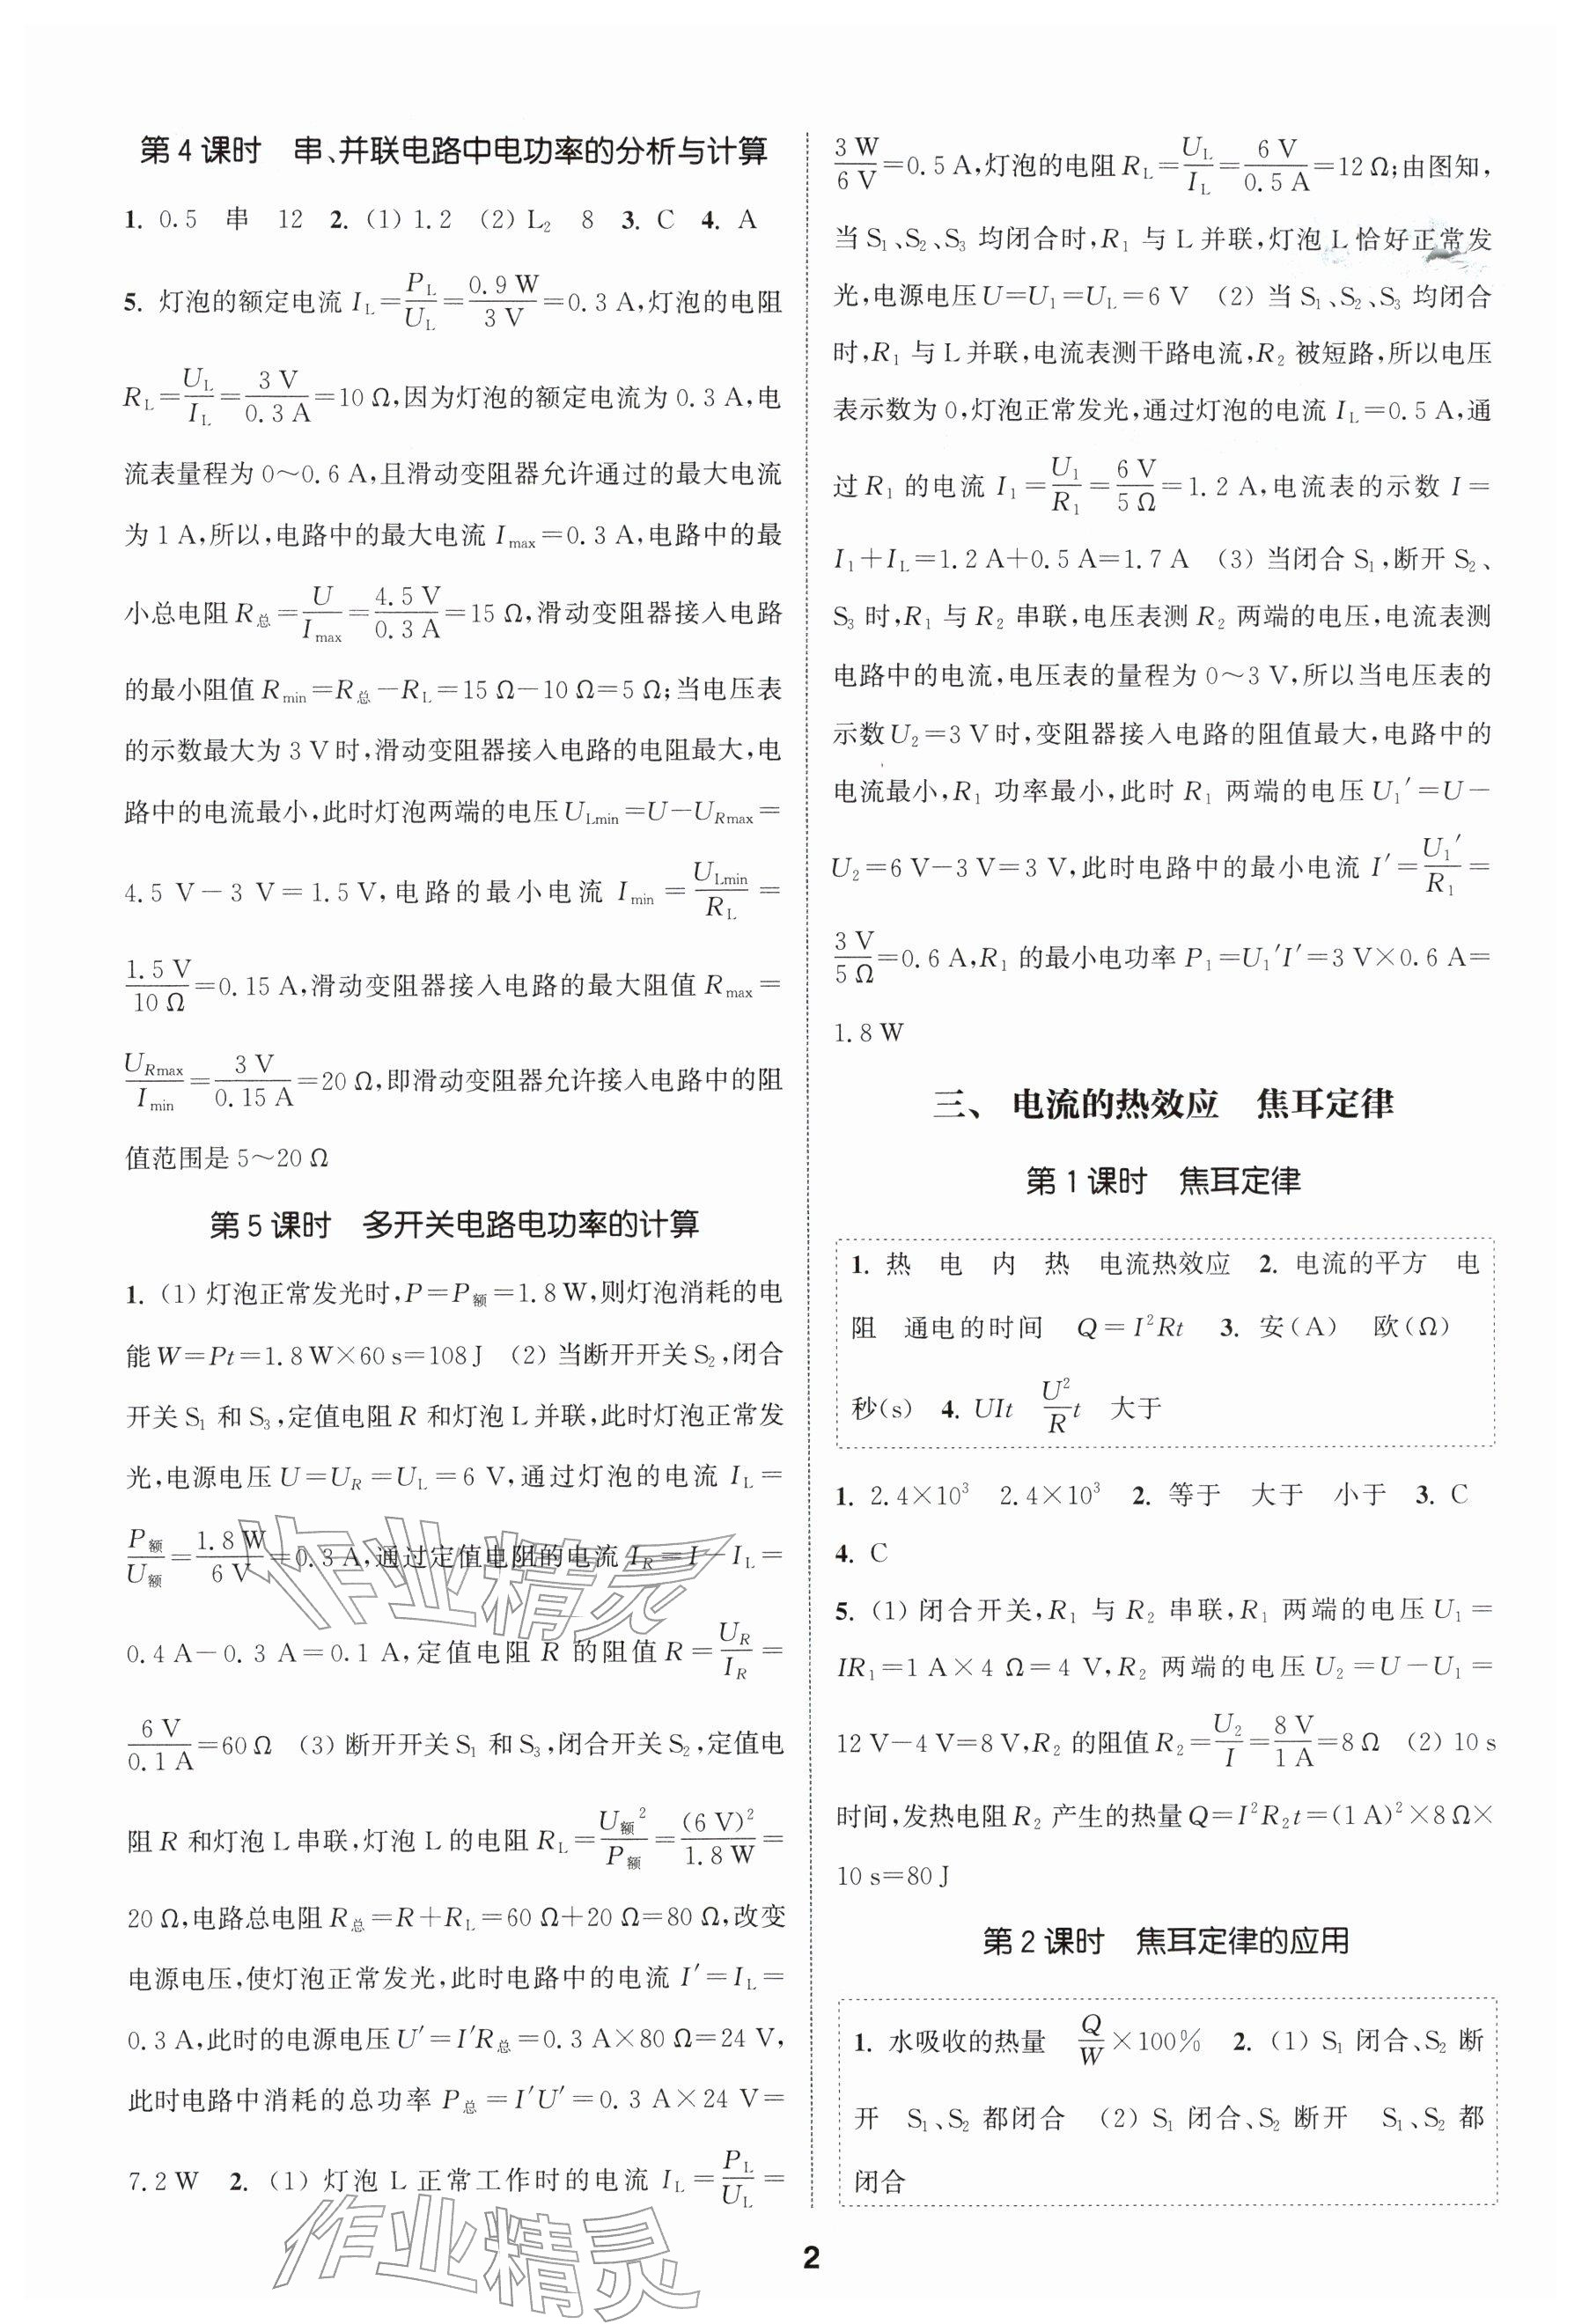 第 4 课时　串、并联电路中电功率的分析与计算
1. 0.5　串　12　2. (1) 1.2　(2) L₂　8　3. C　4. A
5. 灯泡的额定电流 I_L=P_L/U_L=0.9 W/3 V=0.3 A,灯泡的电阻
R_L=U_L/I_L=3 V/0.3 A=10 Ω,因为灯泡的额定电流为 0.3 A,电
流表量程为 0~0.6 A,且滑动变阻器允许通过的最大电流
为 1 A,所以,电路中的最大电流 I_max=0.3 A,电路中的最
小总电阻 R_总=U/I_max=4.5 V/0.3 A=15 Ω,滑动变阻器接入电路
的最小阻值 R_min=R_总-R_L=15 Ω-10 Ω=5 Ω;当电压表
的示数最大为 3 V 时,滑动变阻器接入电路的电阻最大,电
路中的电流最小,此时灯泡两端的电压 U_Lmin=U-U_Rmax=
4.5 V-3 V=1.5 V,电路的最小电流 I_min=U_Lmin/R_L=
1.5 V/10 Ω=0.15 A,滑动变阻器接入电路的最大阻值 R_max=
U_Rmax/I_min=3 V/0.15 A=20 Ω,即滑动变阻器允许接入电路中的阻
值范围是 5~20 Ω
第 5 课时　多开关电路电功率的计算
1. (1) 灯泡正常发光时,P=P_额=1.8 W,则灯泡消耗的电
能 W=Pt=1.8 W×60 s=108 J　(2) 当断开开关 S₂,闭合
开关 S₁ 和 S₃,定值电阻 R 和灯泡 L 并联,此时灯泡正常发
光,电源电压 U=U_R=U_L=6 V,通过灯泡的电流 I_L=
P_额/U_额=1.8 W/6 V=0.3 A,通过定值电阻的电流 I_R=I-I_L=
0.4 A-0.3 A=0.1 A,定值电阻 R 的阻值 R=U_R/I_R=
6 V/0.1 A=60 Ω　(3) 断开开关 S₁ 和 S₃,闭合开关 S₂,定值电
阻 R 和灯泡 L 串联,灯泡 L 的电阻 R_L=U_额²/P_额=(6 V)²/1.8 W=
20 Ω,电路总电阻 R_总=R+R_L=60 Ω+20 Ω=80 Ω,改变
电源电压,使灯泡正常发光,此时电路中的电流 I′=I_L=
0.3 A,此时的电源电压 U′=I′R_总=0.3 A×80 Ω=24 V,
此时电路中消耗的总功率 P_总=I′U′=0.3 A×24 V=
7.2 W　2. (1) 灯泡 L 正常工作时的电流 I_L=P_L/U_L=
3 W/6 V=0.5 A,灯泡的电阻 R_L=U_L/I_L=6 V/0.5 A=12 Ω;由图知,
当 S₁、S₂、S₃ 均闭合时,R₁ 与 L 并联,灯泡 L 恰好正常发
光,电源电压 U=U₁=U_L=6 V　(2) 当 S₁、S₂、S₃ 均闭合
时,R₁ 与 L 并联,电流表测干路电流,R₂ 被短路,所以电压
表示数为 0,灯泡正常发光,通过灯泡的电流 I_L=0.5 A,通
过 R₁ 的电流 I₁=U₁/R₁=6 V/5 Ω=1.2 A,电流表的示数 I=
I₁+I_L=1.2 A+0.5 A=1.7 A　(3) 当闭合 S₁,断开 S₂、
S₃ 时,R₁ 与 R₂ 串联,电压表测 R₂ 两端的电压,电流表测
电路中的电流,电压表的量程为 0~3 V,所以当电压表的
示数 U₂=3 V 时,变阻器接入电路的阻值最大,电路中的
电流最小,R₁ 功率最小,此时 R₁ 两端的电压 U₁′=U-
U₂=6 V-3 V=3 V,此时电路中的最小电流 I′=U₁′/R₁=
3 V/5 Ω=0.6 A,R₁ 的最小电功率 P₁=U₁′I′=3 V×0.6 A=
1.8 W
三、电流的热效应　焦耳定律
第 1 课时　焦耳定律
1. 热　电　内　热　电流热效应　2. 电流的平方　电
阻　通电的时间　Q=I²Rt　3. 安(A)　欧(Ω)
秒(s)　4. UIt　U²/R t　大于
1. 2.4×10³　2.4×10³　2. 等于　大于　小于　3. C
4. C
5. (1) 闭合开关,R₁ 与 R₂ 串联,R₁ 两端的电压 U₁=
IR₁=1 A×4 Ω=4 V,R₂ 两端的电压 U₂=U-U₁=
12 V-4 V=8 V,R₂ 的阻值 R₂=U₂/I=8 V/1 A=8 Ω　(2) 10 s
时间,发热电阻 R₂ 产生的热量 Q=I²R₂t=(1 A)²×8 Ω×
10 s=80 J
第 2 课时　焦耳定律的应用
1. 水吸收的热量　Q/W×100%　2. (1) S₁ 闭合、S₂ 断
开　S₁、S₂ 都闭合　(2) S₁ 闭合、S₂ 断开　S₁、S₂ 都
闭合
作业精灵
作业精灵
2